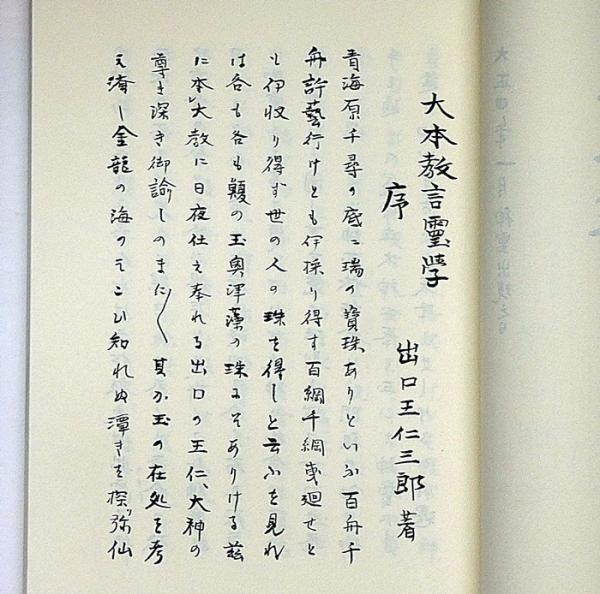 大本教言靈学
序
出口王仁三郎 著
青海原千尋の底に瑞の寶珠ありといふ百舟千
舟許藝行けとも伊採り得す百綱千綱曳廻せと
も伊収り得ず世の人の珠を得しと云ふを見れ
は各も各も鰒の玉奥津藻の珠にそありける茲
に本ト大教に日夜仕え奉れる出口の王仁、大神の
尊き深き御諭しのまに〱其か玉の在処を考
え済し金龍の海のそこひ知れぬ潭きを探り弥仙